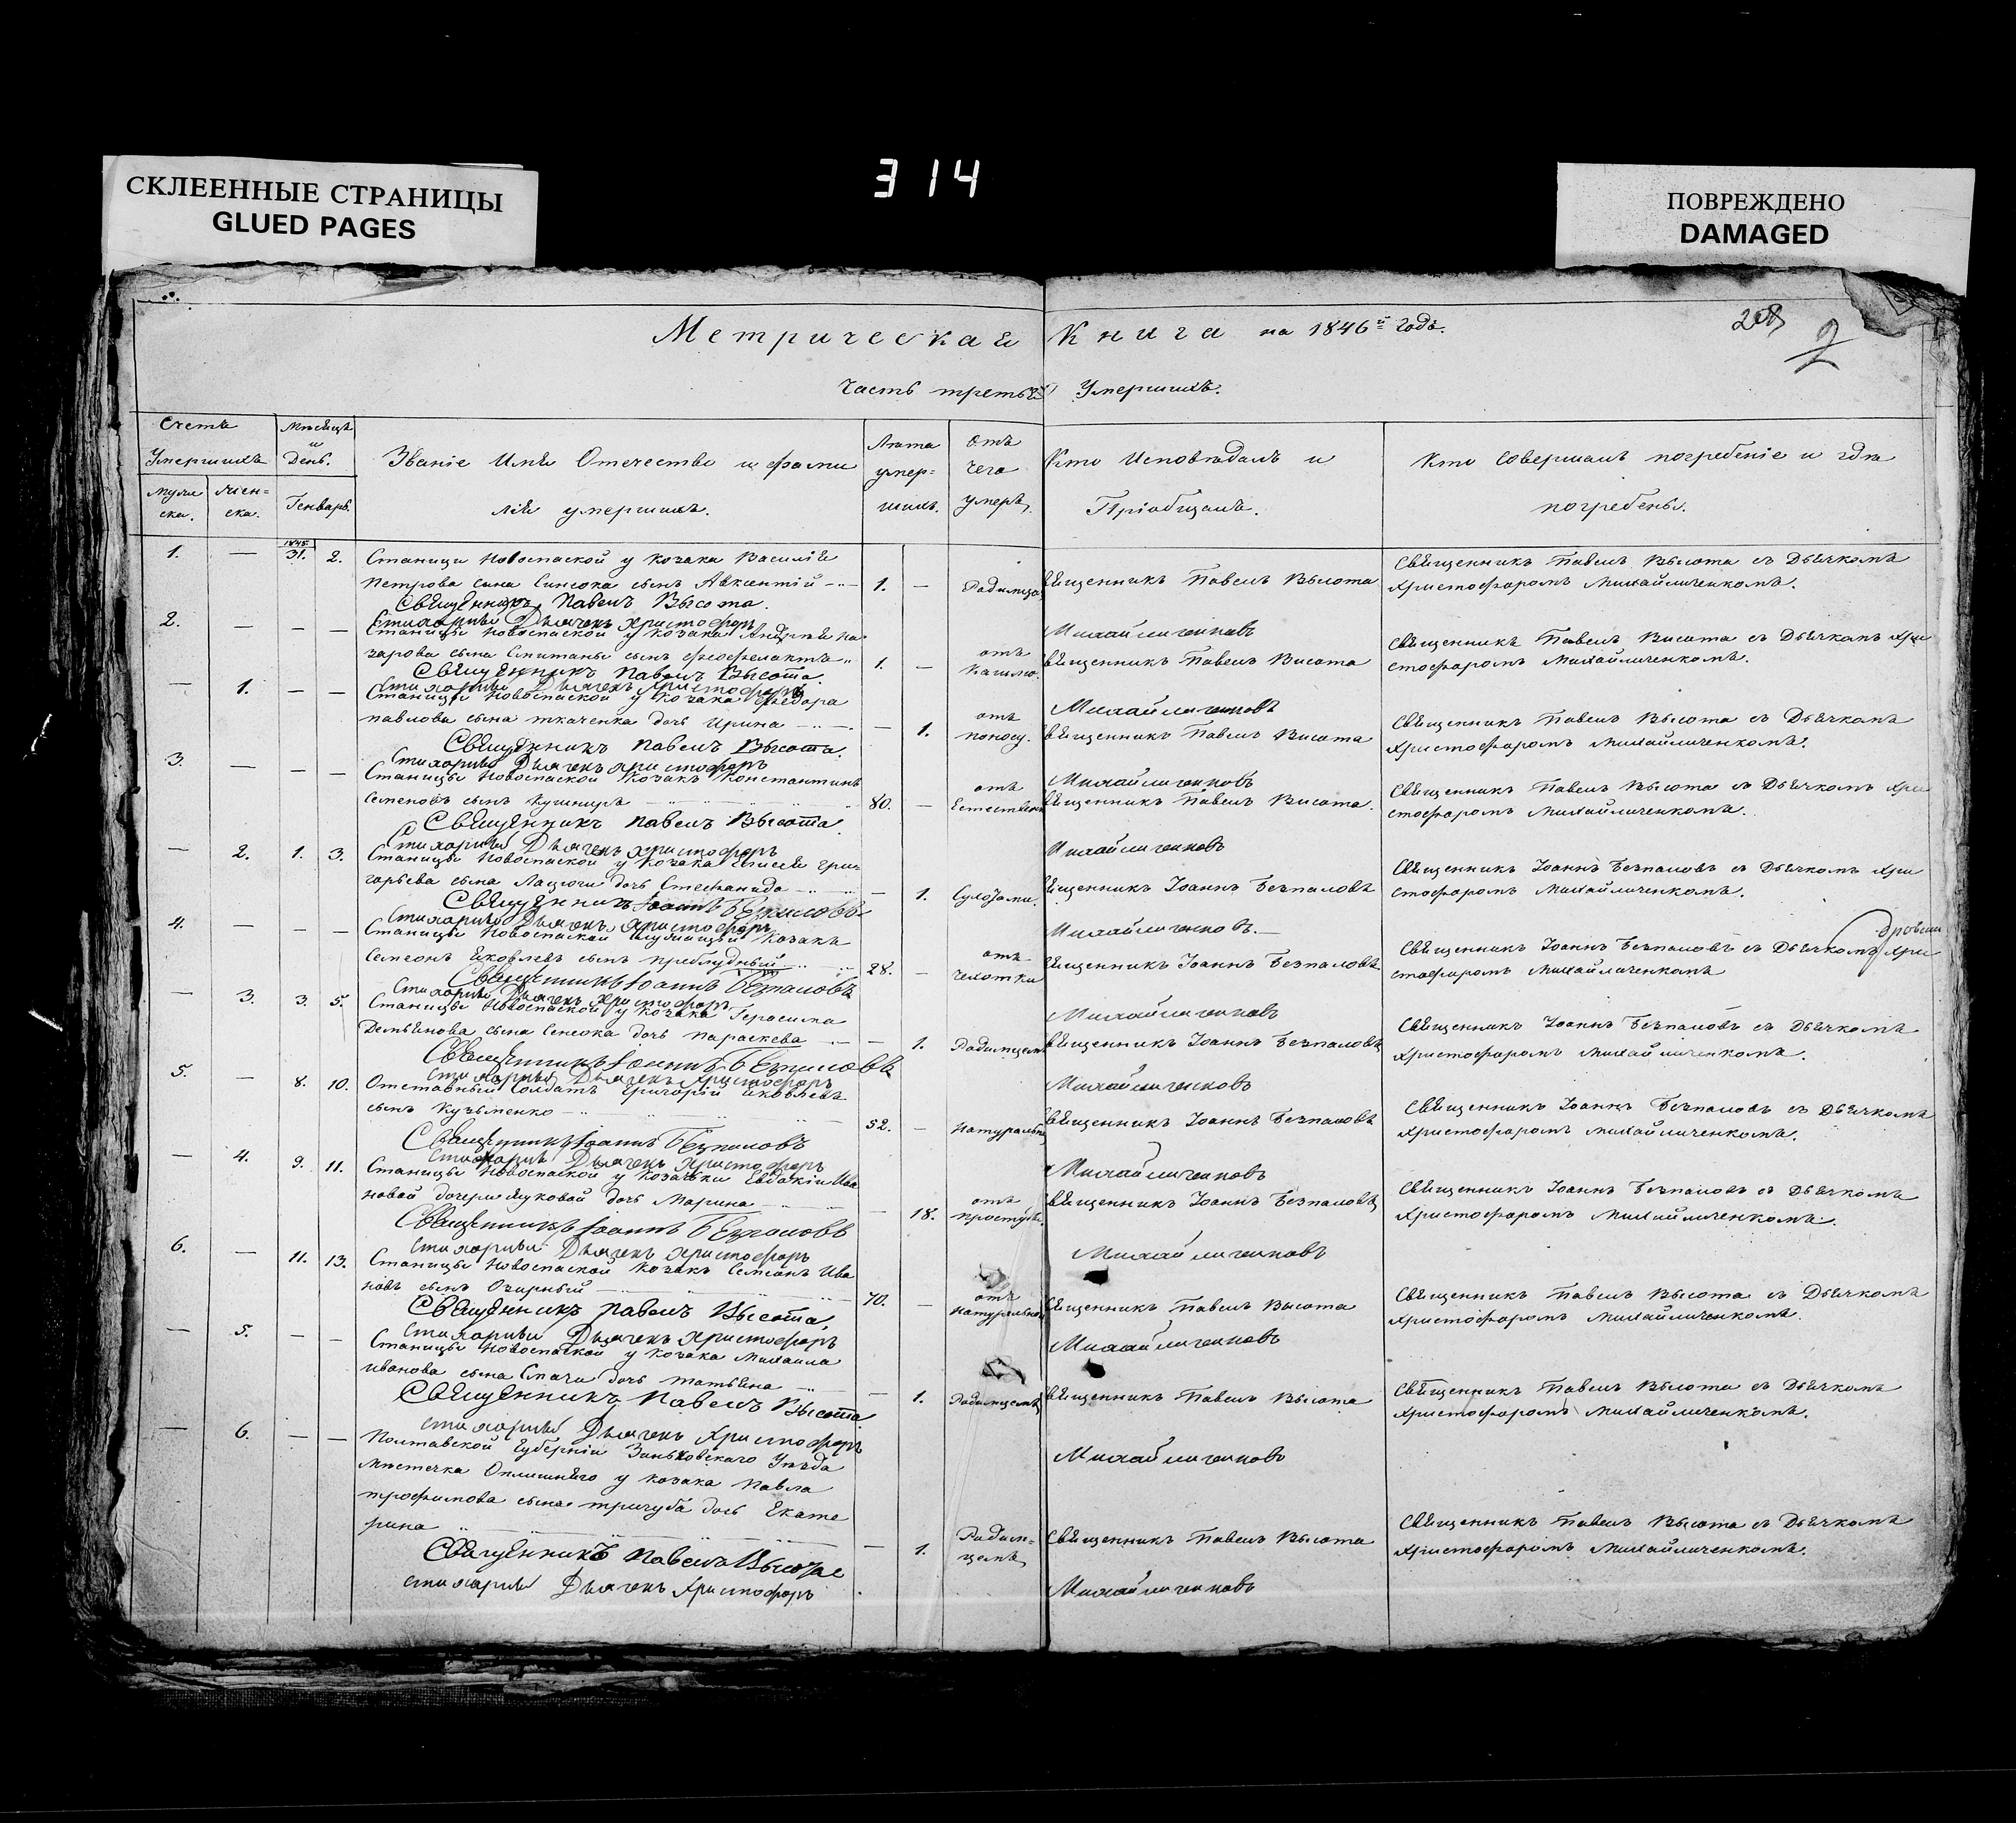 314
СКЛЕЕННЫЕ СТРАНИЦЫ
GLUED PAGES
ПОВРЕЖДЕНО
DAMAGED
2
Метрическая Книга на 1846й годъ.
Часть третья Умершихъ.
Счетъ Умершихъ
Муже ска.
Жен= ска.
Мѣсяцъ и День.
Генварь.
Званіе Имя Отечество и Фами
лія умершихъ.
Лѣта умер= шихъ.
Отъ чего умеръ.
Кто Исповѣдалъ и
Пріобщалъ.
Кто совершалъ погребеніе и гдѣ
погребены.
1. — 1845 31. 2. Станици Новоспаской у козака Василія
Петрова сына Синѣока сынъ Авксентій — 1. — Родимца Священникъ Павелъ Высота
Священникъ Павелъ Высота съ Дьячкомъ
Христофоромъ Михайличенкомъ.
Священникъ Павелъ Высота.
Стихарный Дьячекъ Христофоръ Михайличенковъ
2. — — — Станицы Новоспаской у козака Андрѣя На=
зарова сына сынъ Феофелактъ 1. — отъ Кашлю. Священникъ Павелъ Висота
Священникъ Павелъ Висота съ Дьячкомъ Хри
стофоромъ Михайличенкомъ.
Священникъ Павелъ Высота.
Стихарный Дьячекъ Христофоръ Михайличенковъ
— 1. — — Станицы Новоспаской у козака Федора
Павлова сына Ткаченка дочь Ирина — — 1. отъ поносу. Священникъ Павелъ Висота
Священникъ Павелъ Высота съ Дьячкомъ
Христофоромъ Михайличенкомъ.
Священникъ Павелъ Высота.
Стихарный Дьячекъ Христофоръ Михайличенковъ
3. — — — Станицы Новоспаской Козакъ Константинъ
Семеновъ сынъ Кушниръ 80. — отъ Естествен Священникъ Павелъ Висота.
Священникъ Павелъ Высота съ Дьячкомъ Хри
стофоромъ Михайличенкомъ.
Священникъ Павелъ Высота.
Стихарный Дьячекъ Христофоръ Михайличенковъ
— 2. 1. 3. Станицы Новоспаской у козака Елисея Гри=
горьева сына дочь Стефанида — — 1. Священникъ Іоаннъ Безпаловъ
Священникъ Іоаннъ Безпаловъ съ Дьячкомъ Хри
стофоромъ Михайличенкомъ.
Священникъ Іоаннъ Безпаловъ
Стихарный Дьячекъ Христофоръ Михайличенковъ.—
4. — — — Станицы Новоспаской служащій козакъ
Семеонъ Яковлевъ сынъ Преблудный 28. — отъ чехотки Священникъ Іоаннъ Безпаловъ
Священникъ Іоаннъ Безпаловъ съ Дьячкомъ Хри
стофоромъ Михайличенкомъ
Священникъ Іоаннъ Безпаловъ
Стихарный Дьячекъ Христофоръ Михайличенковъ
— 3. 3. 5. Станицы Новоспаской у козака Герасима
Демьянова сына Синѣока дочь Параскева — 1. Родимцемъ Священникъ Іоаннъ Безпаловъ
Священникъ Іоаннъ Безпаловъ съ Дьячкомъ
Христофоромъ Михайличенкомъ.
Священникъ Іоаннъ Безпаловъ
Стихарный Дьячекъ Христофоръ Михайличенковъ
5. — 8. 10. Отставный Солдатъ Григорій Яковлевъ
сынъ Кузьменко — 52. — Натуральн Священникъ Іоаннъ Безпаловъ
Священникъ Іоаннъ Безпаловъ съ Дьячкомъ
Христофоромъ Михайличенкомъ.
Священникъ Іоаннъ Безпаловъ
Стихарный Дьячекъ Христофоръ Михайличенковъ
— 4. 9. 11. Станицы Новоспаской у козачки Евдокіи Ива
новой дочери Жуковой дочь Марина — 18. отъ простуды. Священникъ Іоаннъ Безпаловъ
Священникъ Іоаннъ Безпаловъ съ Дьячкомъ
Христофоромъ Михайличенкомъ.
Священникъ Іоаннъ Безпаловъ
Стихарный Дьячекъ Христофоръ Михайличенковъ
6. — 11. 13. Станицы Новоспаской Козакъ Семеонъ Ива
новъ сынъ Озирный 70. — отъ натуральной Священникъ Павелъ Высота
Священникъ Павелъ Высота съ Дьячкомъ
Христофоромъ Михайличенкомъ.
Священникъ Павелъ Высота.
Стихарный Дьячекъ Христофоръ Михайличенковъ
— 5. — — Станицы Новоспаской у козака Михаила
Иванова сына дочь Татьяна — 1. Родимцемъ Священникъ Павелъ Высота
Священникъ Павелъ Высота съ Дьячкомъ
Христофоромъ Михайличенкомъ.
Священникъ Павелъ Высота
Стихарный Дьячекъ Христофоръ Михайличенковъ
— 6. — — Полтавской Губерніи Зиньковскаго Уѣзда
Мѣстечка Опишняго у козака Павла
Трофимова сына Тричуба дочь Екате
рина — 1. Родим= цемъ Священникъ Павелъ Высота
Священникъ Павелъ Высота съ Дьячкомъ
Христофоромъ Михайличенкомъ.
Священникъ Павелъ Высота
Стихарный Дьячекъ Христофоръ Михайличенковъ